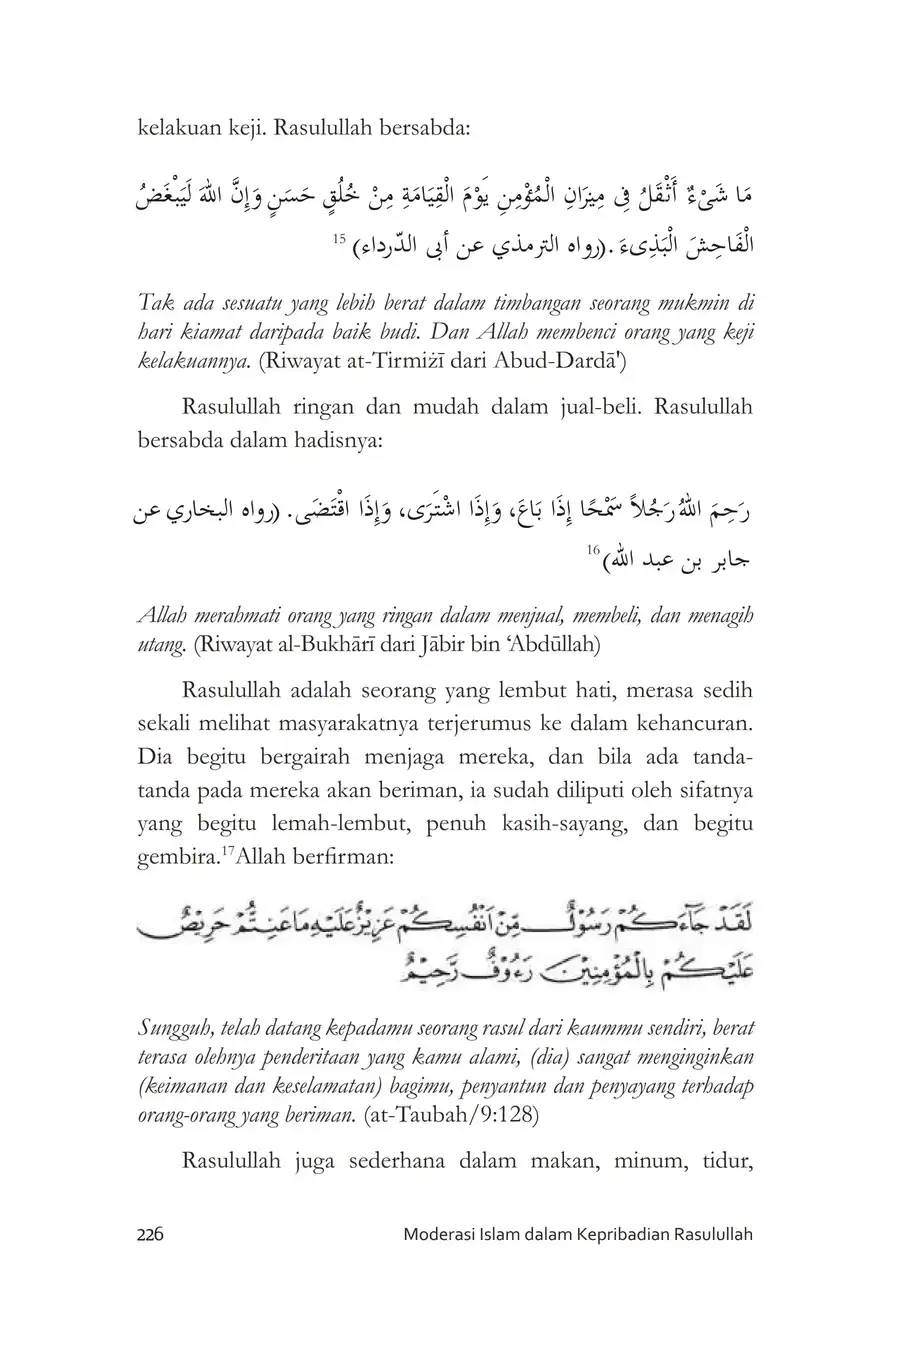 kelakuan keji. Rasulullah bersabda:
مَا شَىْءٌ أَثْقَلُ فِى مِيزَانِ الْمُؤْمِنِ يَوْمَ الْقِيَامَةِ مِنْ خُلُقٍ حَسَنٍ وَإِنَّ اللهَ لَيَبْغَضُ
الْفَاحِشَ الْبَذِىءَ .(رواه الترمذي عن أبى الدّرداء) 15
Tak ada sesuatu yang lebih berat dalam timbangan seorang mukmin di
hari kiamat daripada baik budi. Dan Allah membenci orang yang keji
kelakuannya. (Riwayat at-Tirmiżī dari Abud-Dardā')
Rasulullah ringan dan mudah dalam jual-beli. Rasulullah
bersabda dalam hadisnya:
رَحِمَ اللهُ رَجُلاً سَمْحًا إِذَا بَاعَ، وَإِذَا اشْتَرَى، وَإِذَا اقْتَضَى. (رواه البخاري عن
جابر بن عبد الله) 16
Allah merahmati orang yang ringan dalam menjual, membeli, dan menagih
utang. (Riwayat al-Bukhārī dari Jābir bin ‘Abdūllah)
Rasulullah adalah seorang yang lembut hati, merasa sedih
sekali melihat masyarakatnya terjerumus ke dalam kehancuran.
Dia begitu bergairah menjaga mereka, dan bila ada tanda-
tanda pada mereka akan beriman, ia sudah diliputi oleh sifatnya
yang begitu lemah-lembut, penuh kasih-sayang, dan begitu
gembira.17Allah berfirman:
لَقَدْ جَاۤءَكُمْ رَسُوْلٌ مِّنْ اَنْفُسِكُمْ عَزِيْزٌ عَلَيْهِ مَا عَنِتُّمْ حَرِيْصٌ
عَلَيْكُمْ بِالْمُؤْمِنِيْنَ رَءُوْفٌ رَّحِيْمٌ
Sungguh, telah datang kepadamu seorang rasul dari kaummu sendiri, berat
terasa olehnya penderitaan yang kamu alami, (dia) sangat menginginkan
(keimanan dan keselamatan) bagimu, penyantun dan penyayang terhadap
orang-orang yang beriman. (at-Taubah/9:128)
Rasulullah juga sederhana dalam makan, minum, tidur,
226 Moderasi Islam dalam Kepribadian Rasulullah